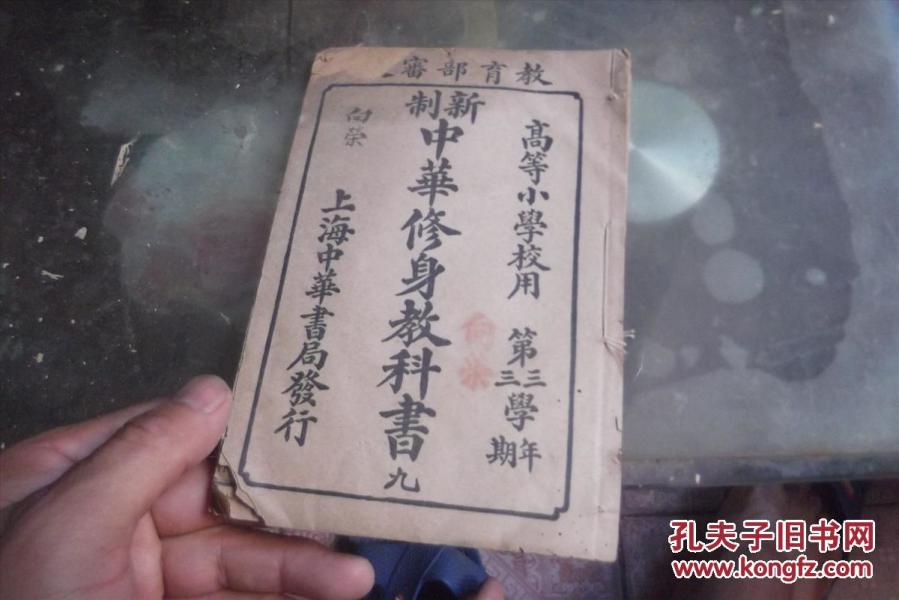 教育部審
高等小學校用 第三三學年期
新制中華修身教科書 九
向榮
上海中華書局發行
向榮
孔夫子旧书网
www.kongfz.com